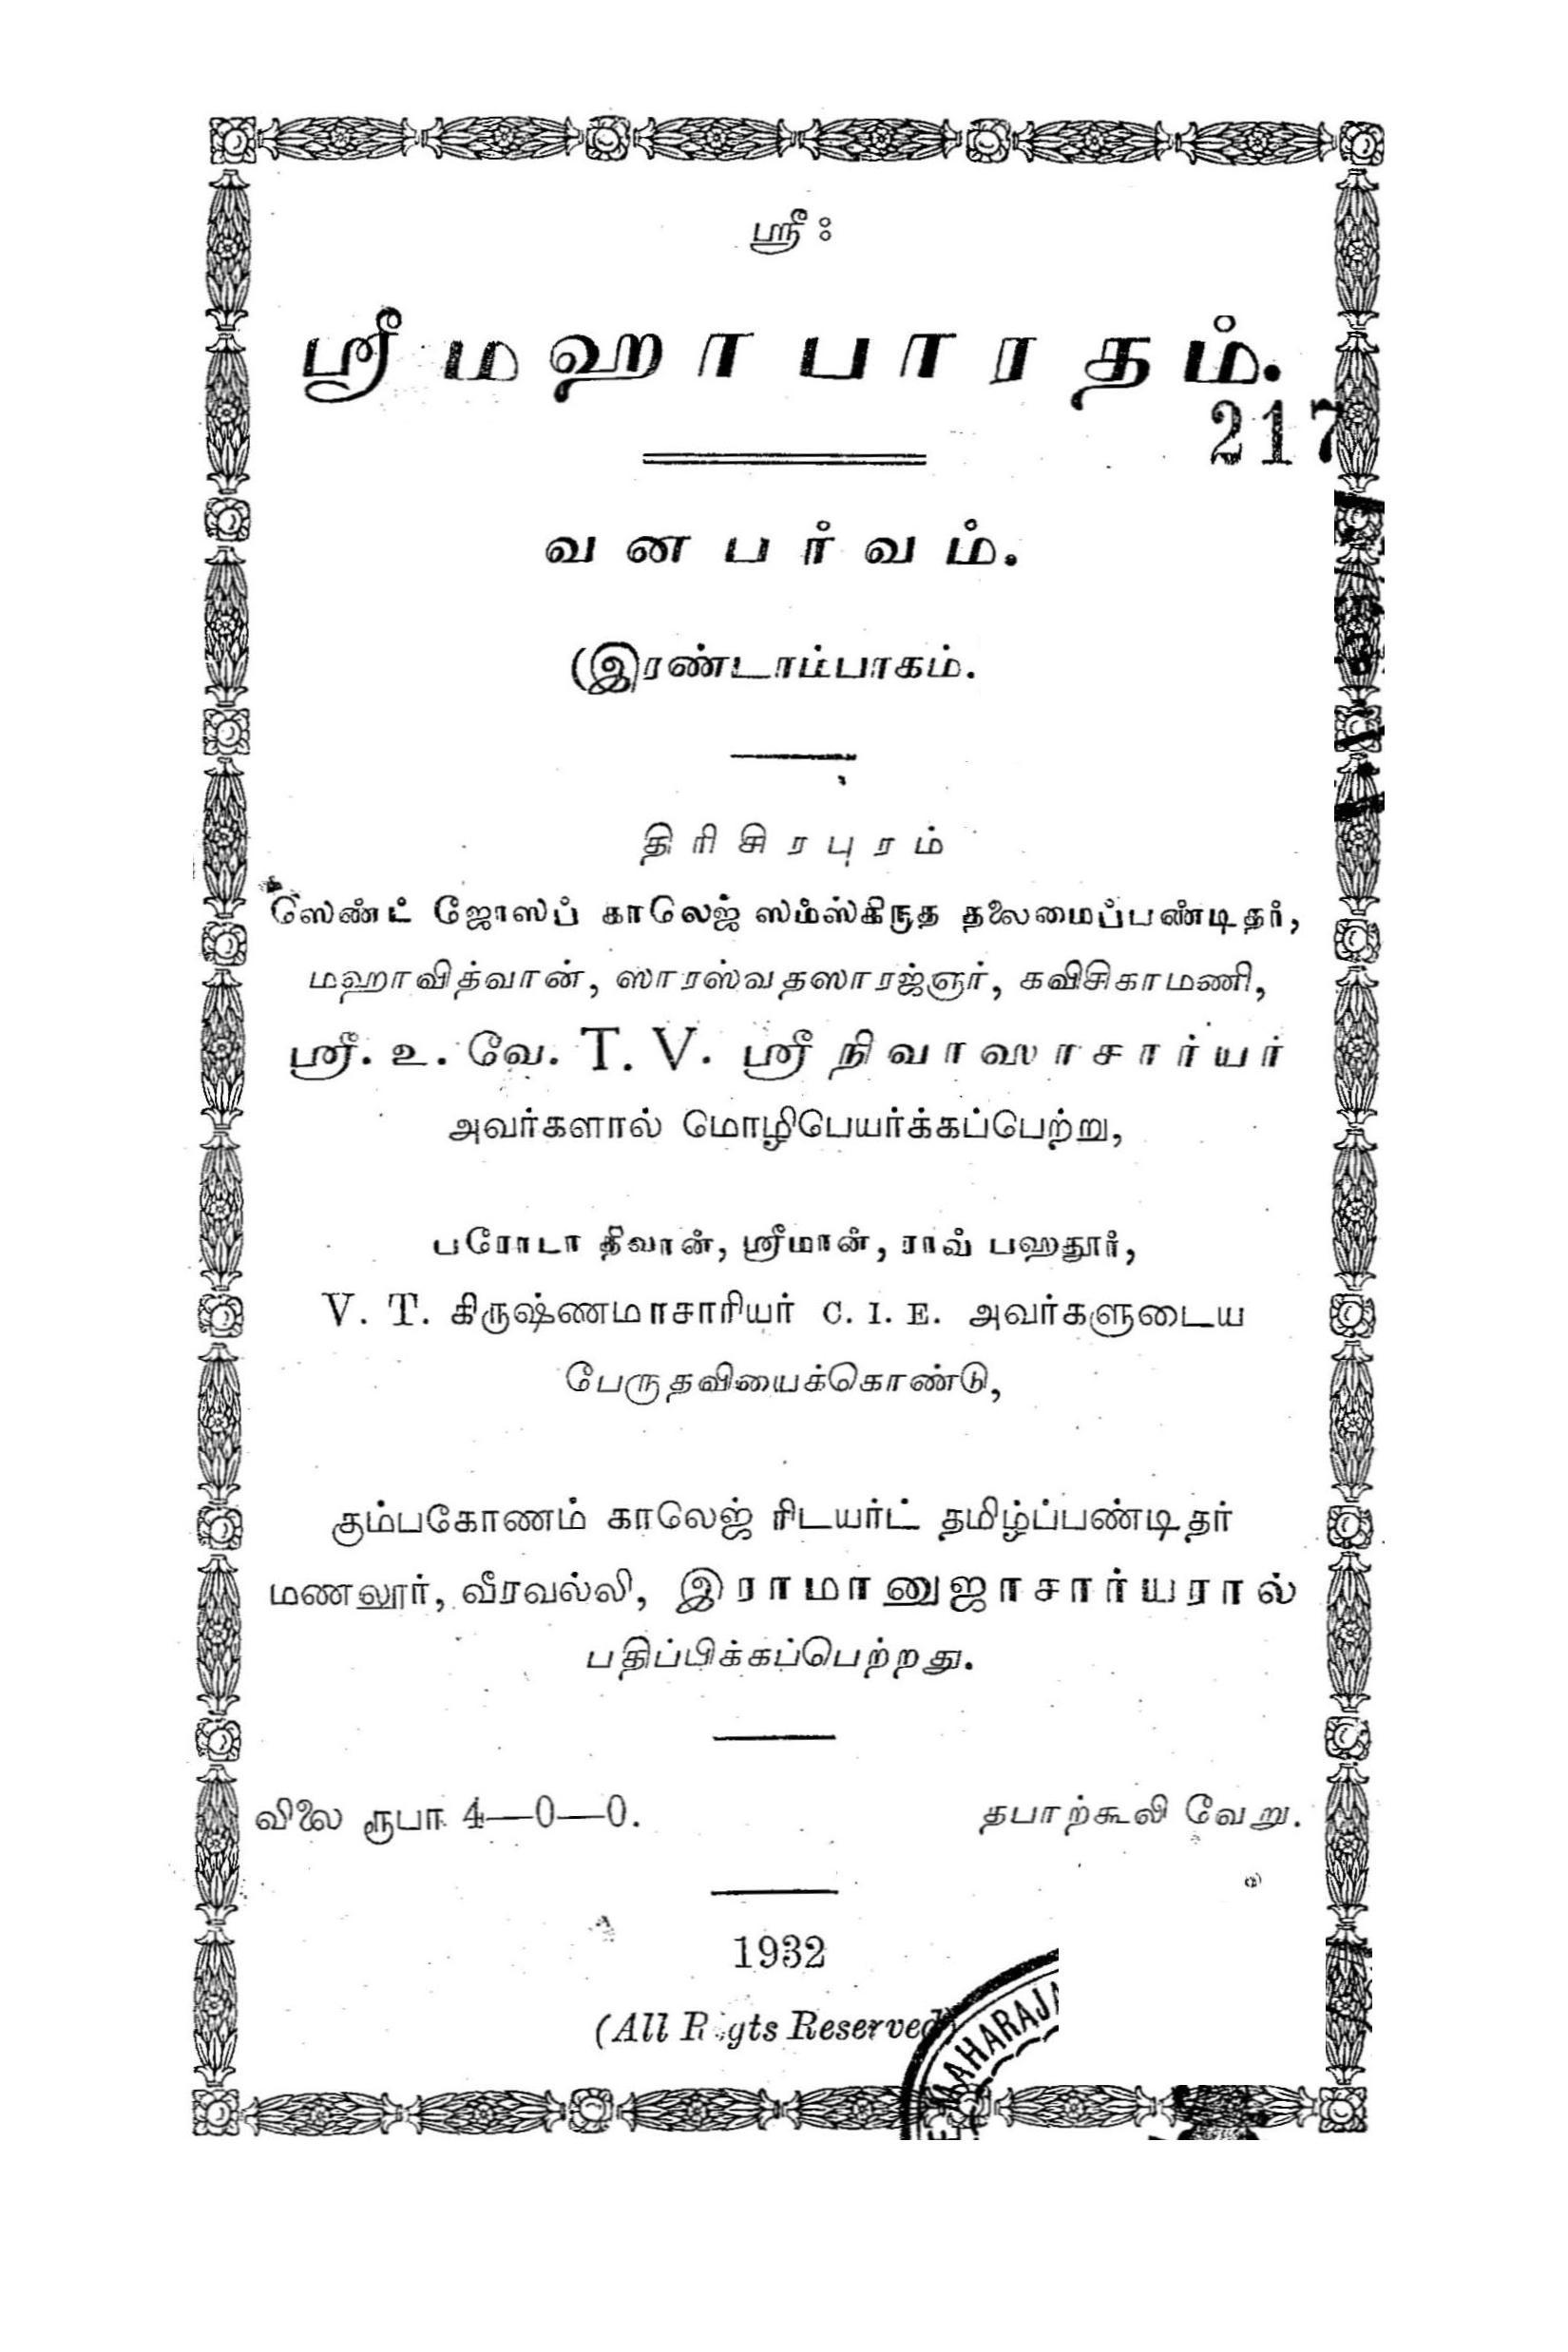 ஸ்ரீஃ
ஸ்ரீமஹாபாரதம்.
217
வனபர்வம்.
(இரண்டாம்பாகம்.
திரிசிரபுரம்
ஸேண்ட் ஜோஸப் காலேஜ் ஸம்ஸ்கிருத தலைமைப்பண்டிதர்,
மஹாவித்வான், ஸாரஸ்வதஸாரஜ்ஞர், கவிசிகாமணி,
ஸ்ரீ. உ. வே. T. V. ஸ்ரீநிவாஸாசார்யர்
அவர்களால் மொழிபெயர்க்கப்பெற்று,
பரோடா திவான், ஸ்ரீமான், ராவ் பஹதூர்,
V. T. கிருஷ்ணமாசாரியர் C. I. E. அவர்களுடைய
பேருதவியைக்கொண்டு,
கும்பகோணம் காலேஜ் ரிடயர்ட் தமிழ்ப்பண்டிதர்
மணலூர், வீரவல்லி, இராமானுஜாசார்யரால்
பதிப்பிக்கப்பெற்றது.
விலை ரூபா 4—0—0. தபாற்கூலி வேறு.
1932
(All Rigts Reserved)
MAHARAJA